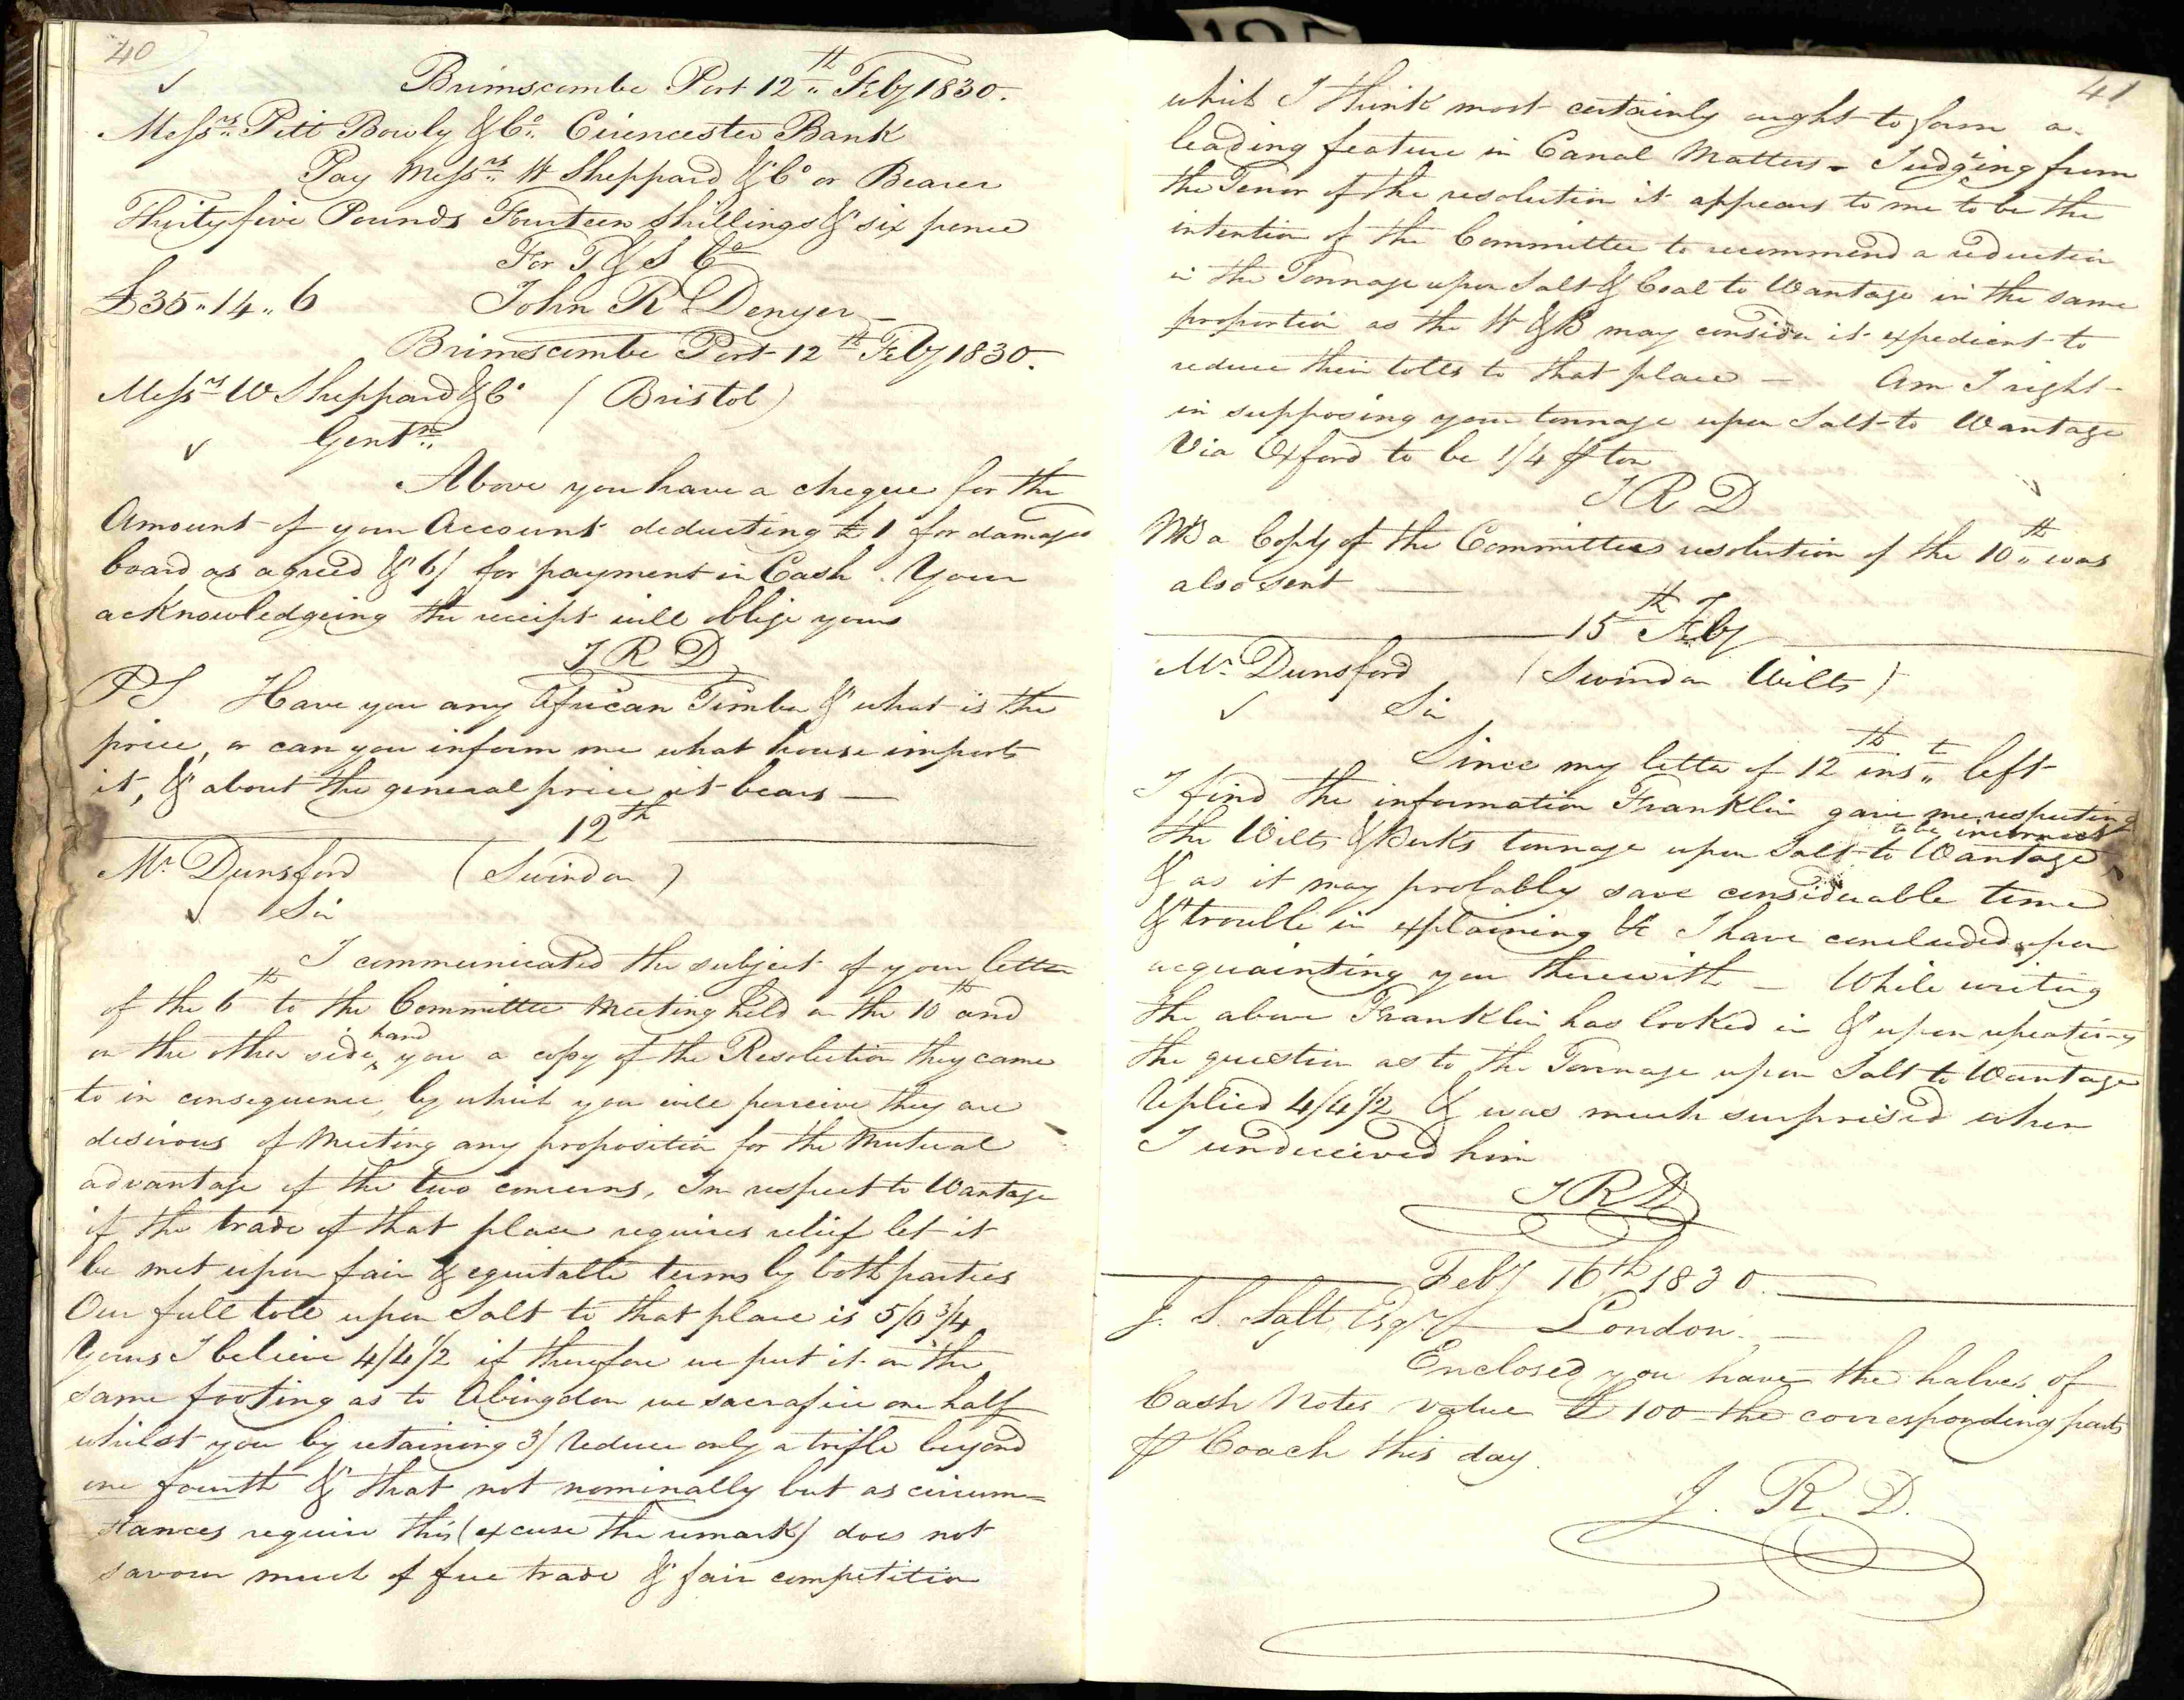 40
Brimscombe Port 12th Feby 1830.
Messrs Pitt Bowly & Co. Cirencester Bank
Pay Messrs W Sheppard & Co or Bearer
Thirty five Pounds Fourteen Shillings & six pence
For T & S Co
£35..14..6 John R Denyer
Brimscombe Port 12th Feby 1830.
Messrs W Sheppard & Co (Bristol)
Gentn..
Above you have a cheque for the
Amount of your Account deducting £1 for damaged
board as agreed & 6/ for payment in Cash. Your
acknowledgeing the receipt will oblige yours
J R D
PS Have you any African Timber & what is the
price, or can you inform me what house imports
it, & about the general price it bears —
12th
Mr Dunsford (Swindon)
Sir
I communicated the subject of your letter
of the 6th to the Committee Meeting held on the 10th and
on the other side hand you a copy of the Resolution they came
to in consequence, by which you will perceive they are
desirous of Meeting any proposition for the Mutual
advantage of the two concerns, In respect to Wantage
if the trade of that place requires relief let it
be met upon fair & equitable terms by both parties
Our full toll upon Salt to that place is 5/0 3/4
Yours I believe 4/4 1/2 if therefore we put it on the
same footing as to Abingdon we sacrafice one half
whilst you by retaining 3/ reduce only a trifle beyond
one fourth & that not nominally but as circum=
stances require this (excuse the remark) does not
savour much of free trade & fair competition
41
which I think most certainly ought to form a
leading feature in Canal Matters - Judgeing from
the Tenor of the resolution it appears to me to be the
intention of the Committee to recommend a reduction
in the Tonnage upon Salt & Coal to Wantage in the same
proportion as the W & B may consider it expedient to
reduce their tolls to that place — Am I right
in supposing your tonnage upon Salt to Wantage
Via Oxford to be 1/4 ⅌ ton
J R D
MD a Copy of the Committees resolution of the 10th.. was
also sent —
15th Feby
Mr Dunsford (Swindon Wilts)
Sir
Since my letter of 12th inst.. left
I find the information Franklin gave me respecting
the Wilts & Berks tonnage upon Salt to Wantage to be incorrect
& as it may probably save considerable time
& trouble in explaining &c I have concluded upon
acquainting you therewith — While writing
the above Franklin has looked in & upon repeating
the question as to the Tonnage upon Salt to Wantage
replied 4/4 1/2 & was much surprised when
I undeceived him
J R D
Feby 16th 1830.
J. S. Salt, Esqr London. —
Enclosed you have the halves of
Cash Notes value £100 the corresponding parts
⅌ Coach this day.
J. R. D.